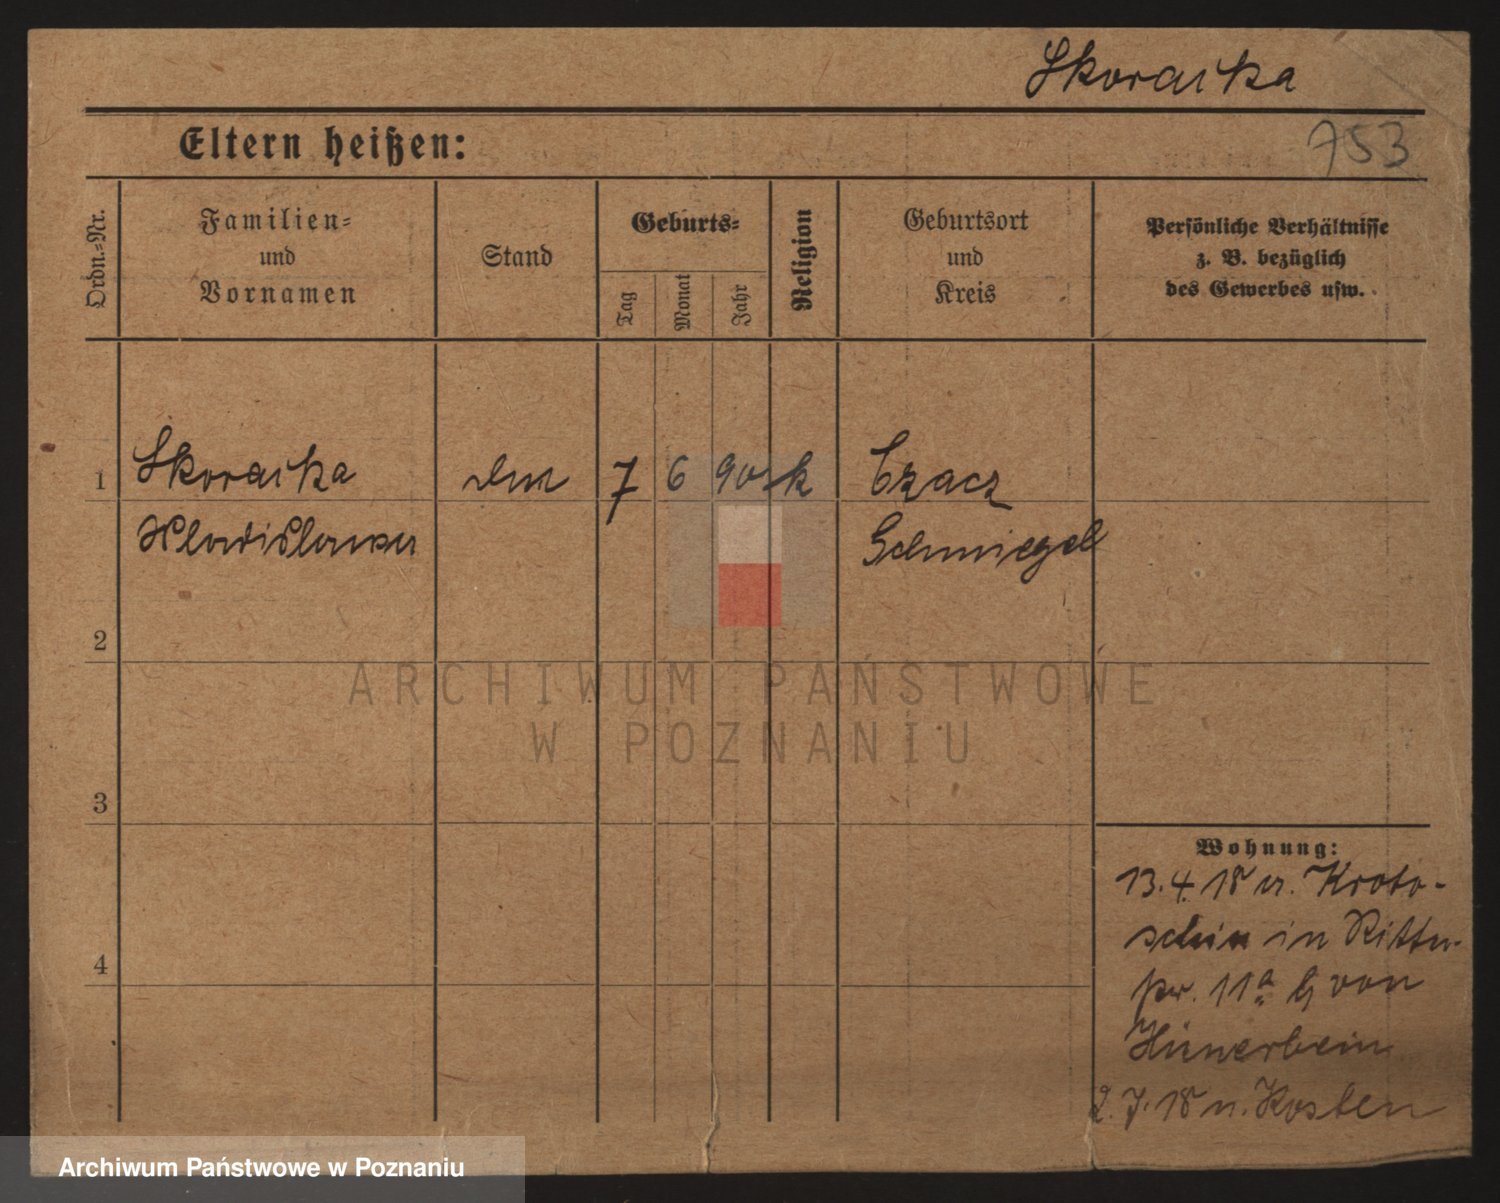 Skoracka
Eltern heißen:
753
Ordn.-Nr.
Familien-
und
Vornamen
Stand
Geburts-
Tag
Monat
Jahr
Religion
Geburtsort
und
Kreis
Persönliche Verhältnisse
z. B. bezüglich
des Gewerbes usw.
1
Skoracka
7
6
90
k
Czacz
Schmiegel
2
3
4
ARCHIWUM PAŃSTWOWE
W POZNANIU
Wohnung:
13.4.18 v. Kroto-
schin in Ritter-
11a b von
Hünerbein
2.7.18 n. Kosten
Archiwum Państwowe w Poznaniu